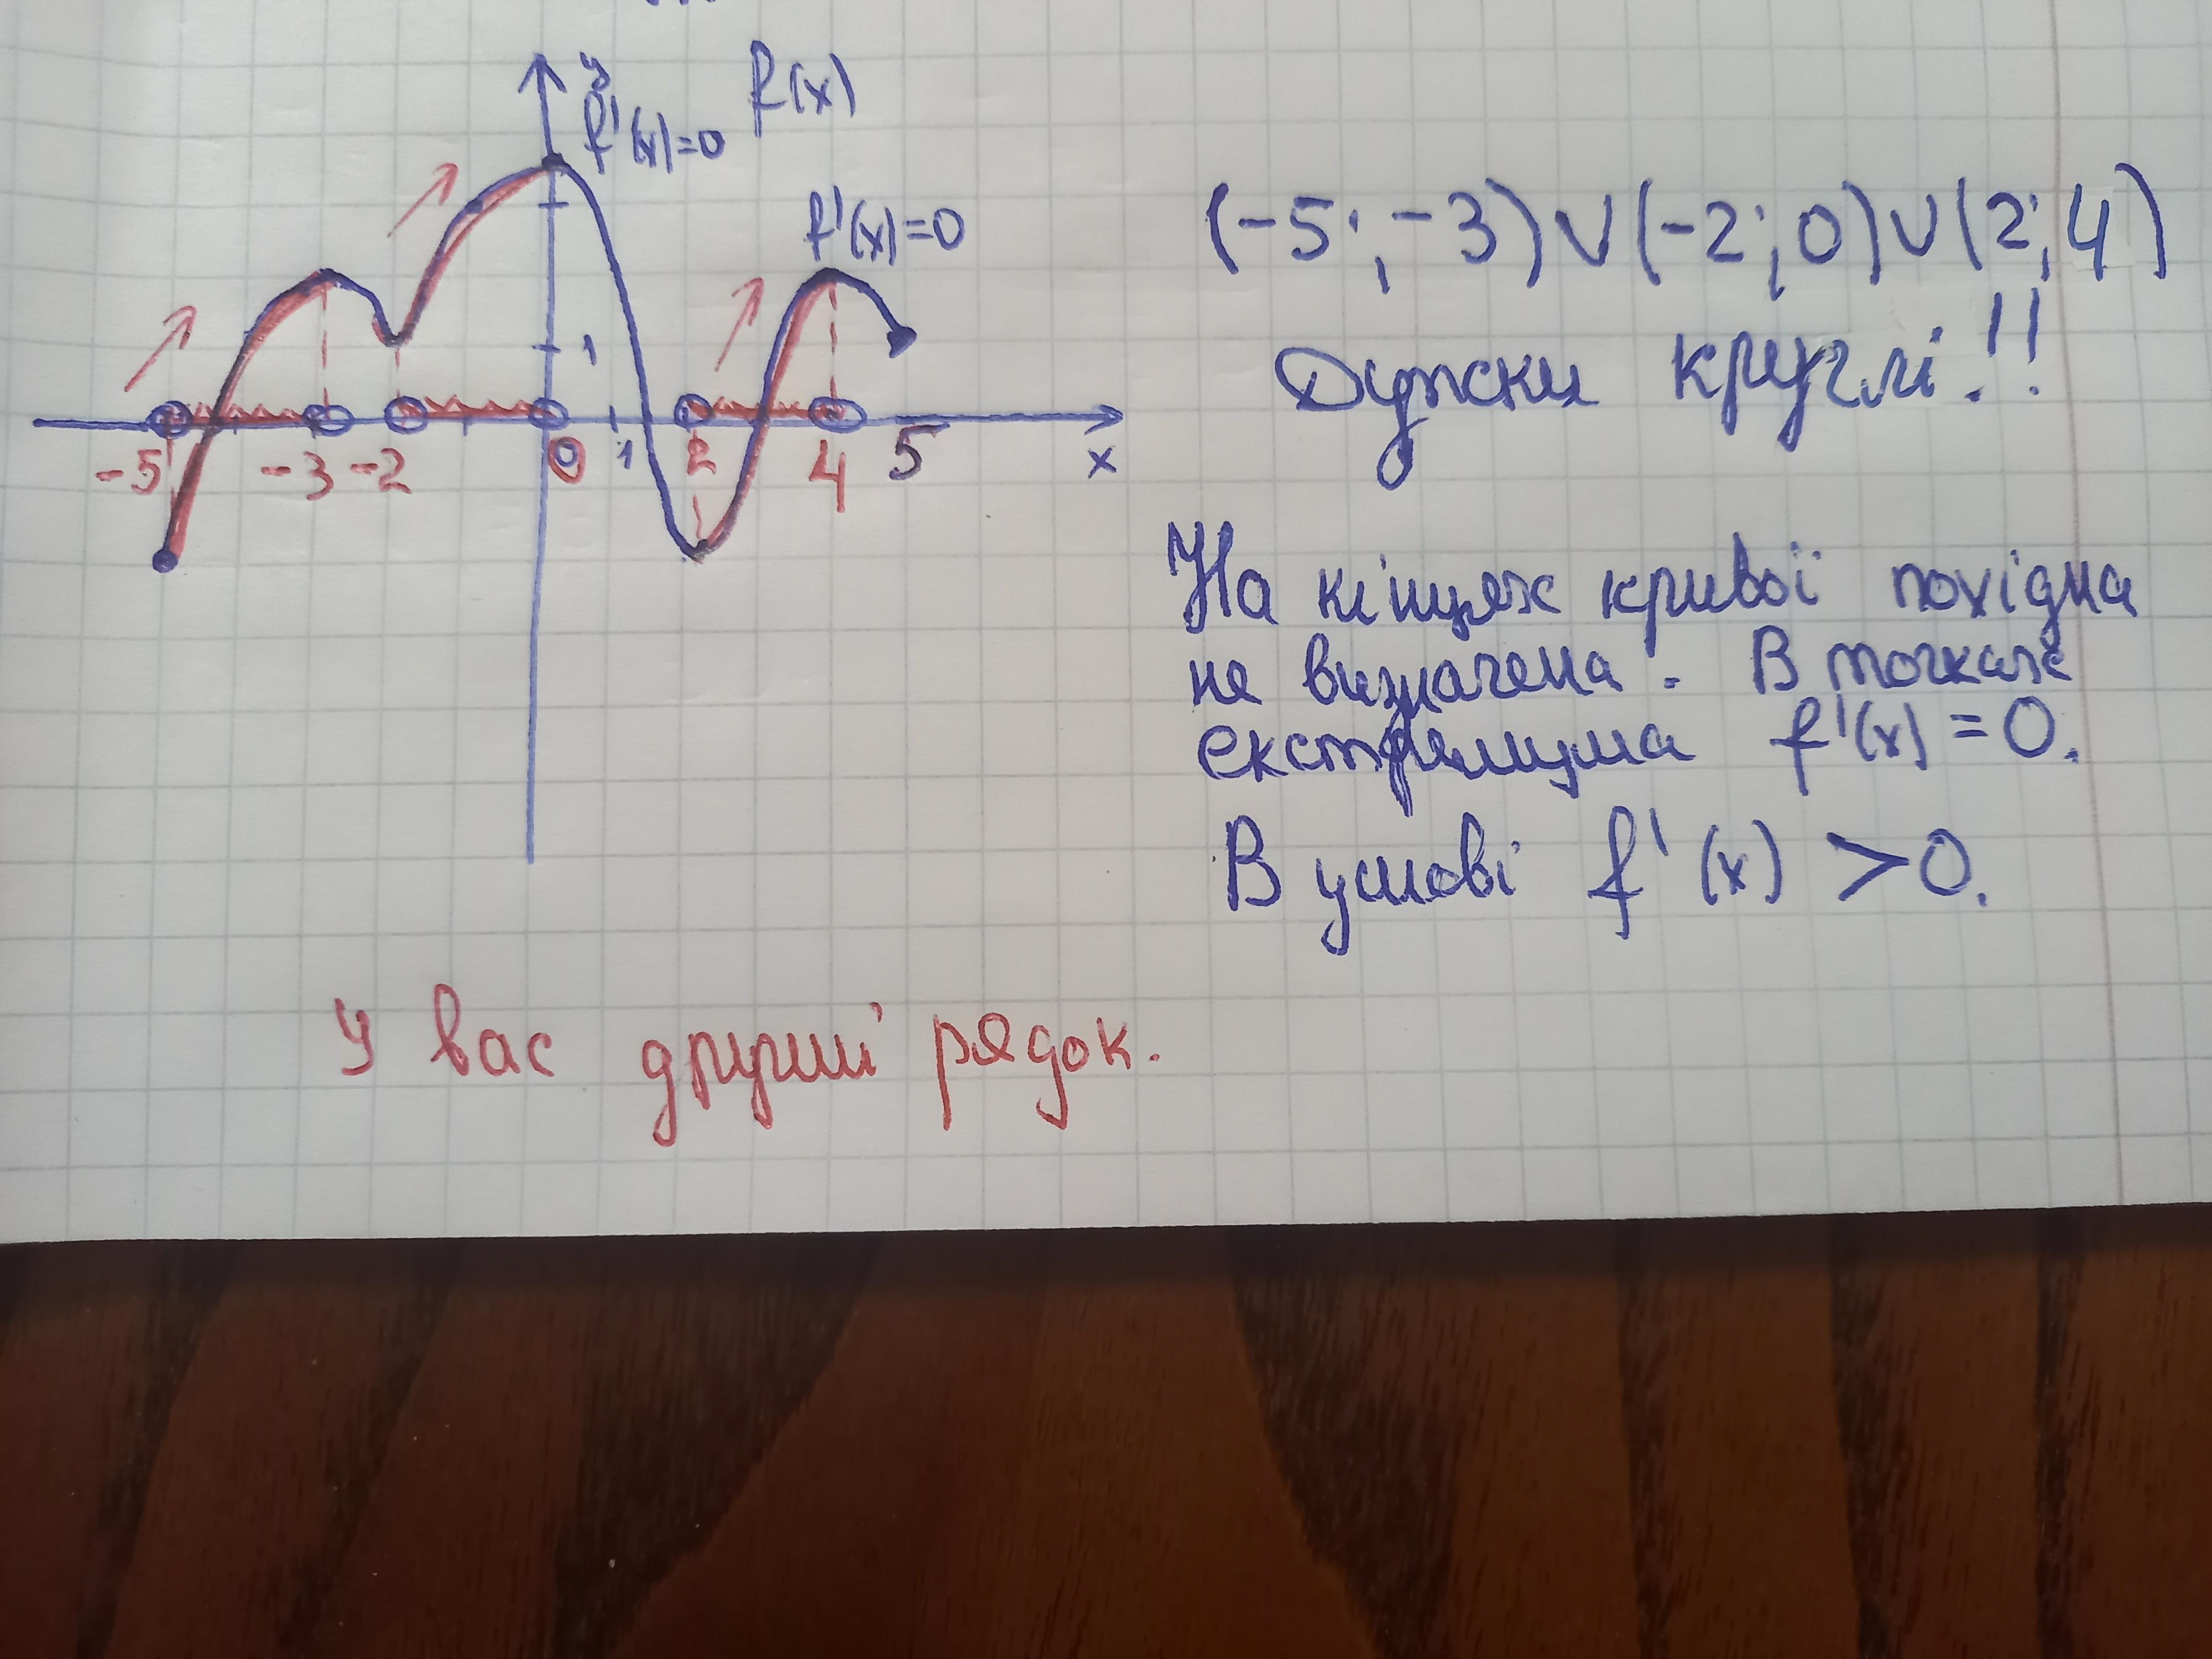 y
f'(x)=0
f(x)
f'(x)=0
1
-5 -3 -2 0 1 2 4 5 x
(-5; -3) ∪ (-2; 0) ∪ (2; 4)
Дужки круглі!!
На кінцях кривої похідна
не визначена. В точках
екстремума f'(x) = 0.
В умові f'(x) > 0.
У вас другий рядок.